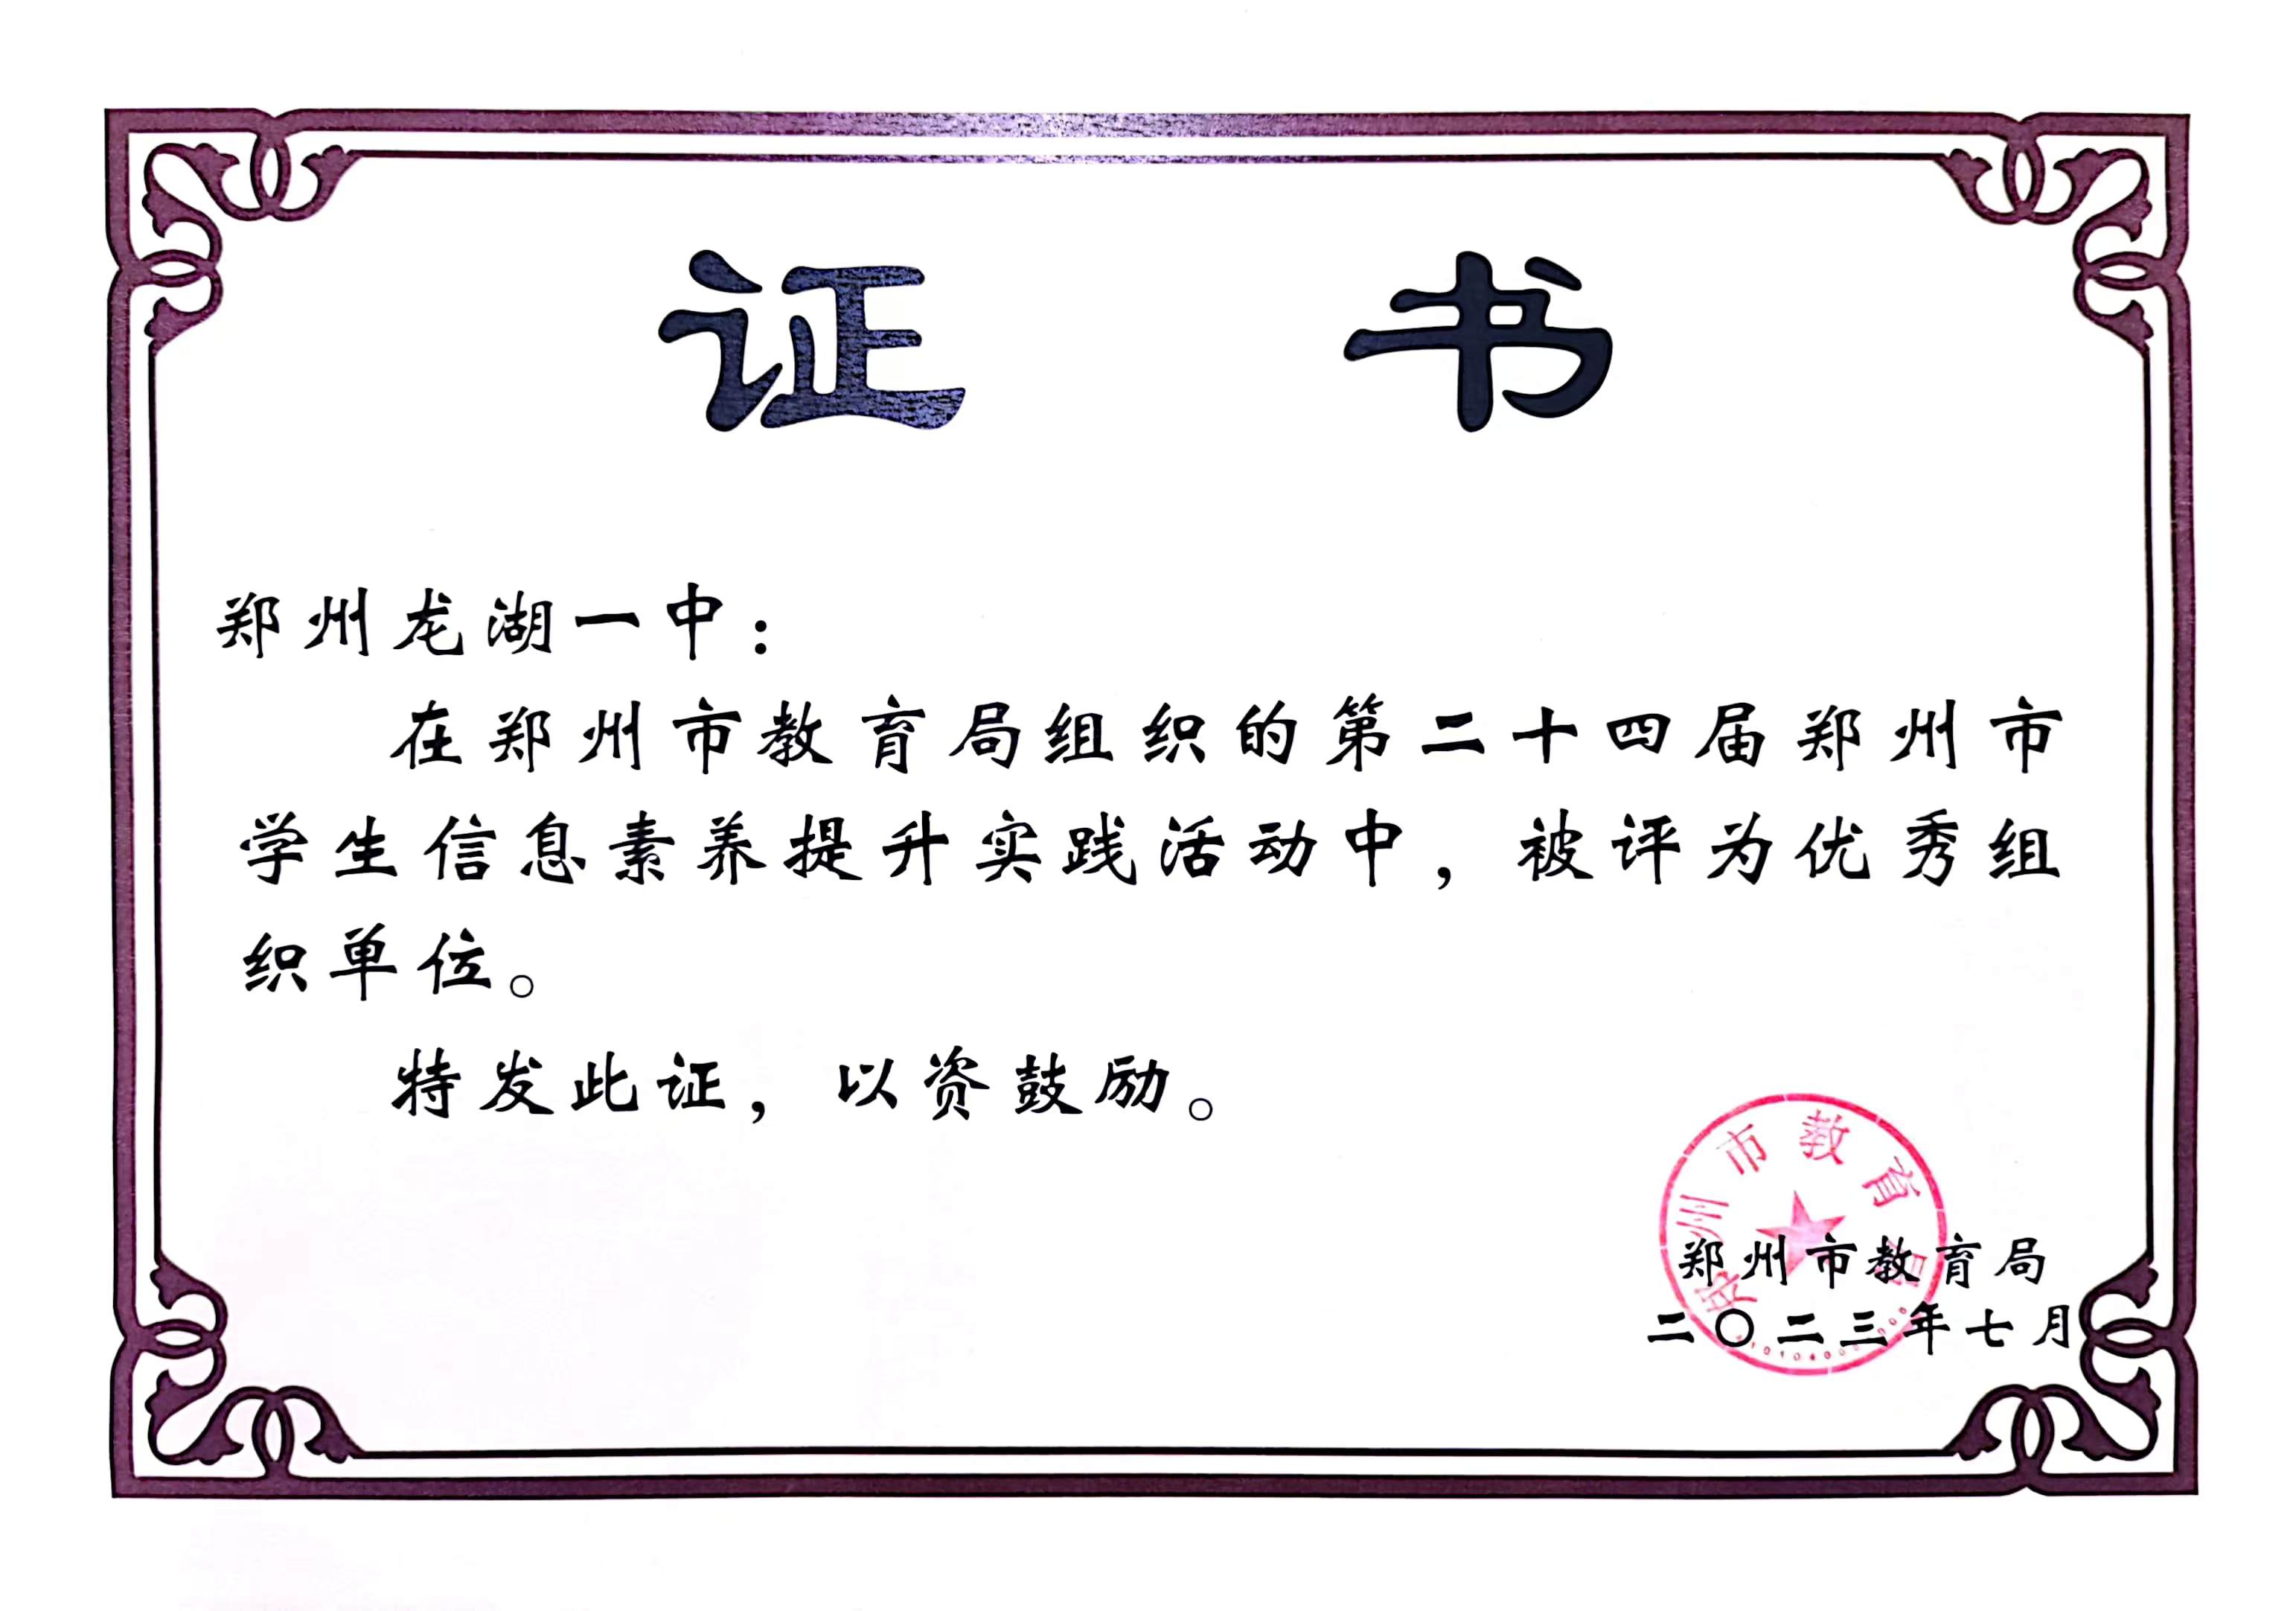 证书
郑州龙湖一中：
在郑州市教育局组织的第二十四届郑州市
学生信息素养提升实践活动中，被评为优秀组
织单位。
特发此证，以资鼓励。
郑州市教育局
郑州市教育局
二〇二三年七月